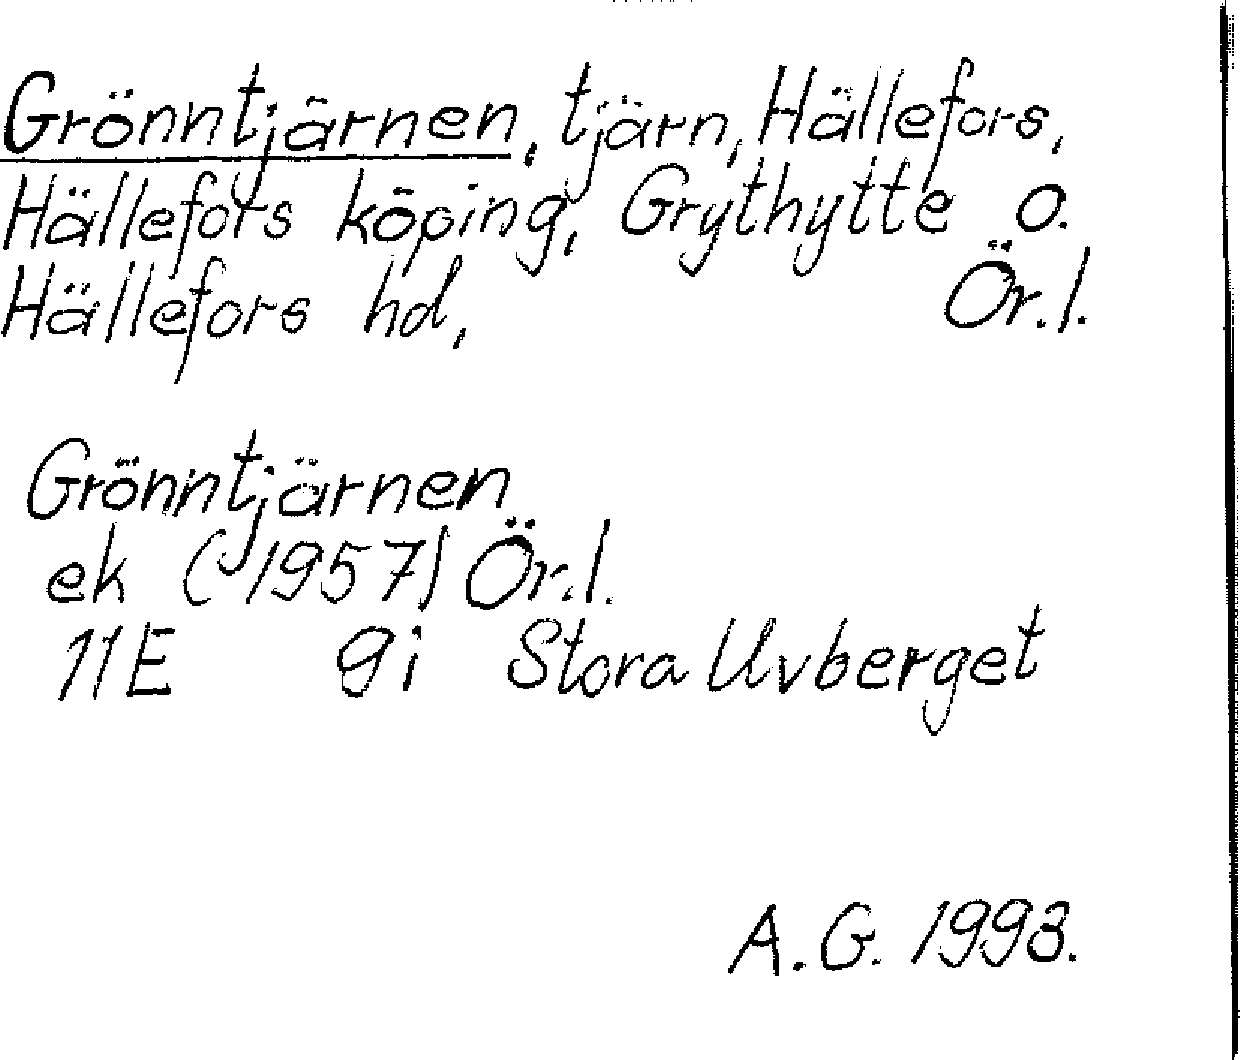 Grönntjärnen, tjärn, Hällefors,
Hällefors köping, Grythytte o.
Hällefors hd, Ör.l.
Grönntjärnen
ek (1957) Ör.l.
11E 9i Stora Uvberget
A.G. 1993.